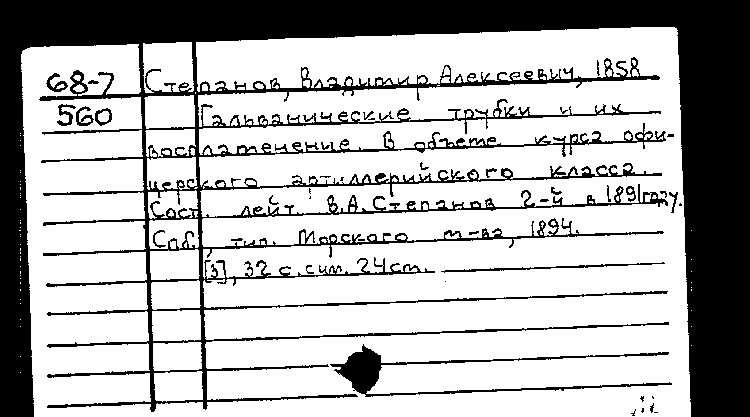 68-7 Степанов, Владимир Алексеевич, 1858
560 Гальванические трубки и их
воспламенение. В объеме курса офи-
церского артиллерийского класса.
Сост. лейт. В.А. Степанов 2-й в 1891 году.
Спб., тип. Морского м-ва, 1894.
[3], 32 с. с ил. 24 см.